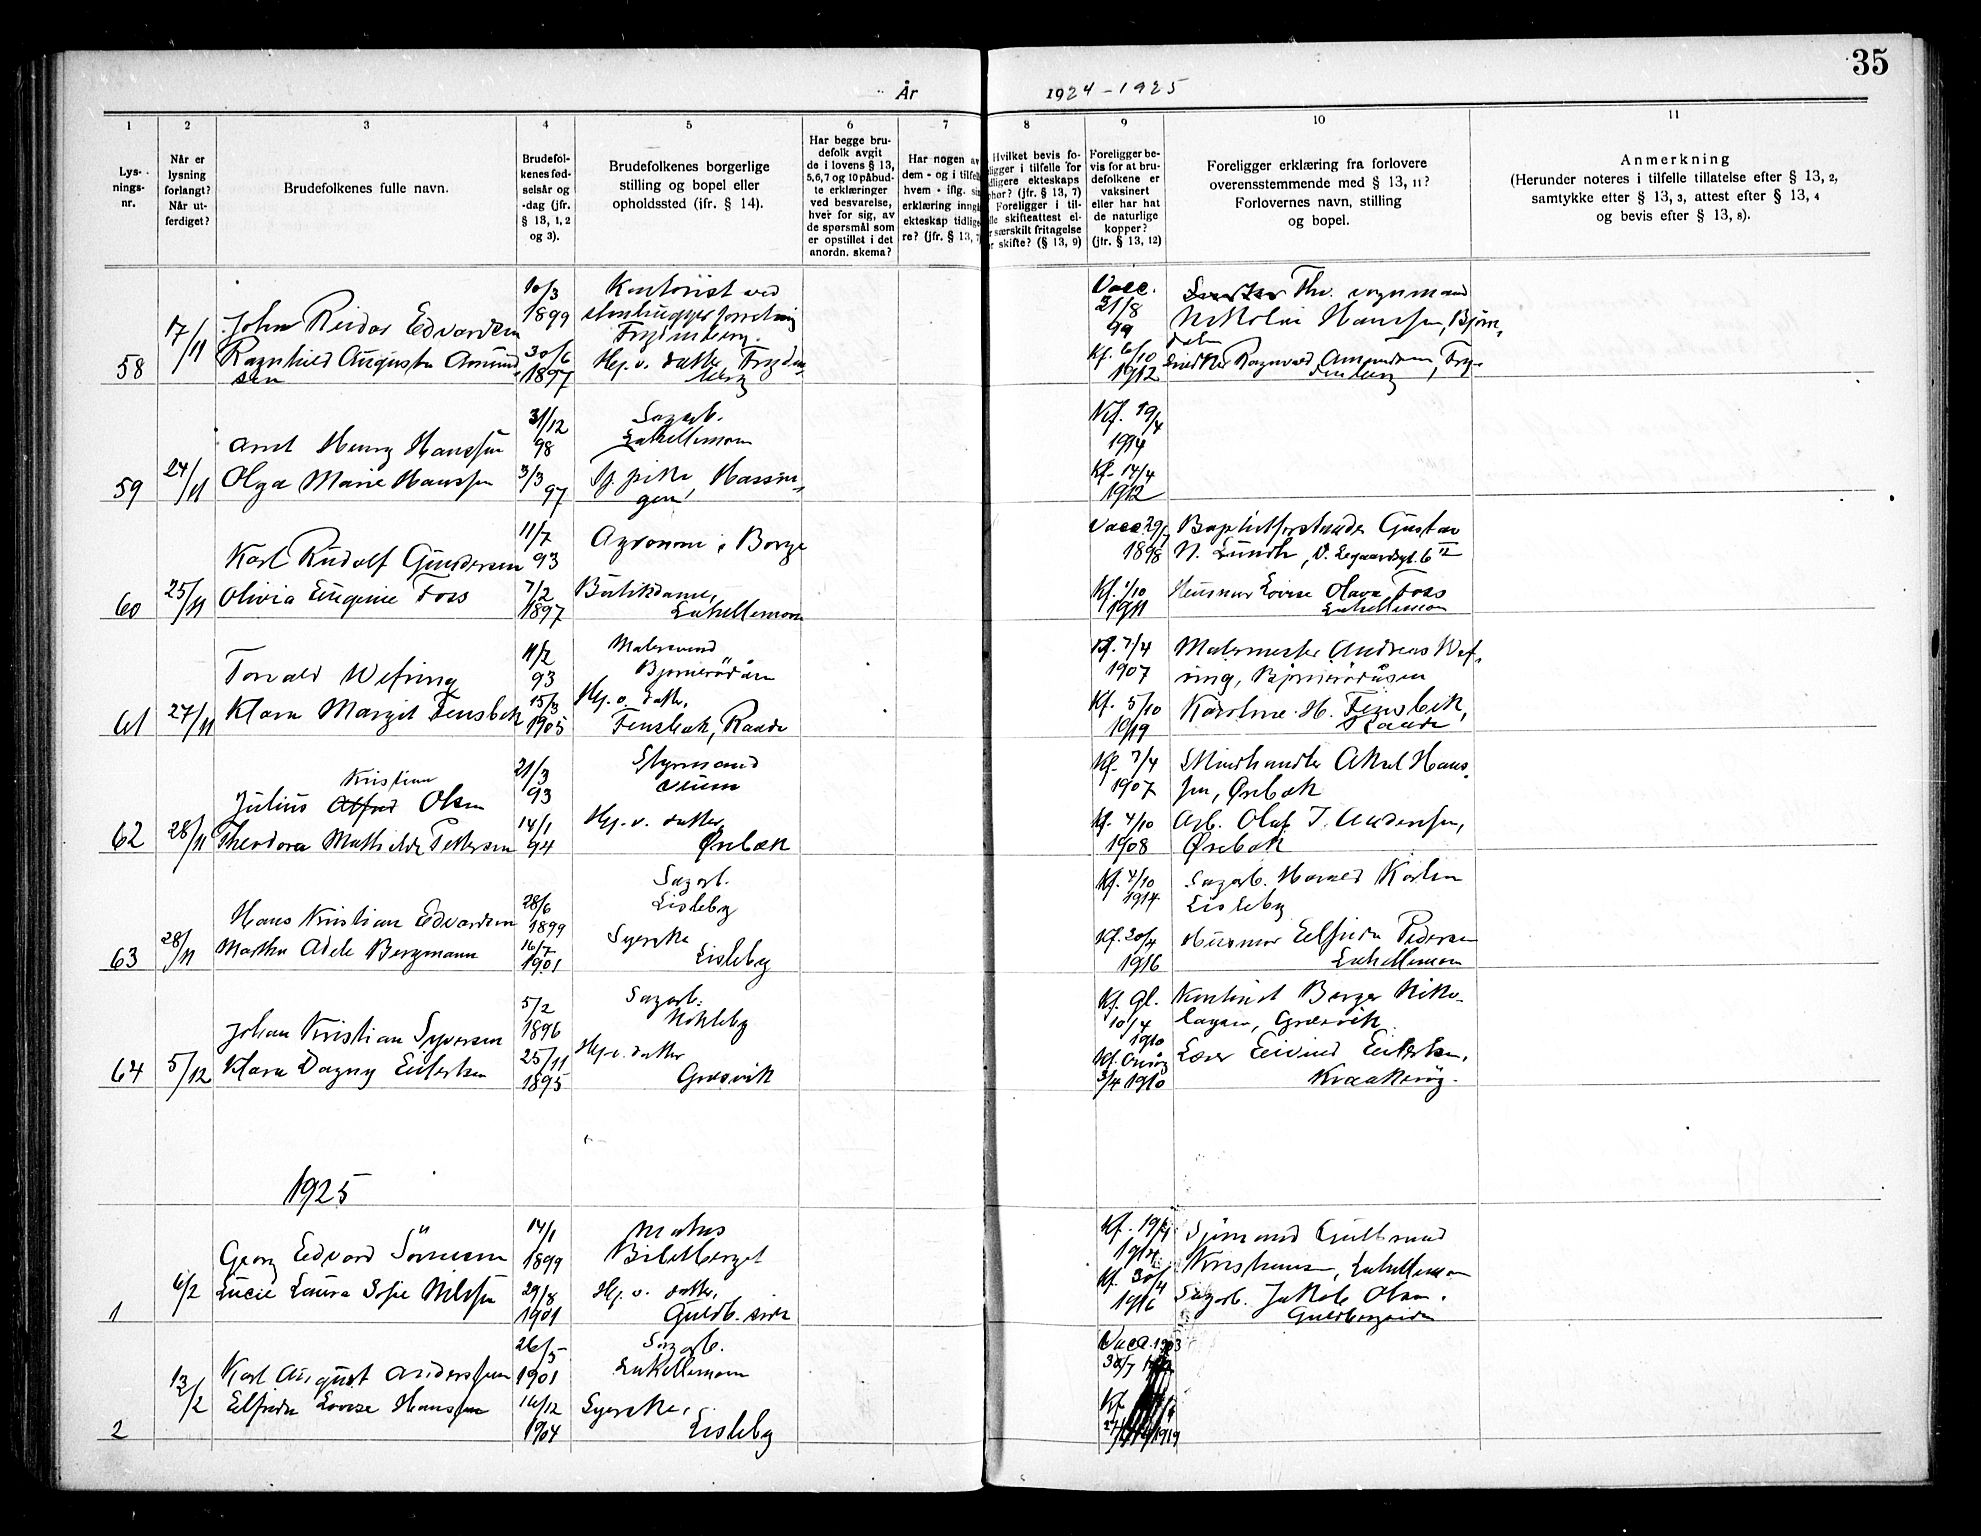 35
År 1924-1925
1
2
3
4
5
6
7
8
9
10
11
Lys-
nings-
nr.
Når er
lysning
forlangt?
Når ut-
ferdiget?
Brudefolkenes fulle navn.
Brudefol-
kenes fød-
selsår og
-dag (jfr.
§ 13, 1, 2
og 3).
Brudefolkenes borgerlige
stilling og bopel eller
opholdssted (jfr. § 14).
Har begge bru-
defolk avgit
de i lovens § 13,
5,6,7 og 10 påbud-
te erklæringer
ved besvarelse,
hver for sig, av
de spørsmål som
er opstillet i det
anordn. skema?
Har nogen av
dem - og i tilfel
hvem - iflg. si
erklæring inng
ekteskap tidlig
re? (jfr. § 13, 7
Hvilket bevis fo-
ligger i tilfelle for
dligere ekteskaps
phør? (jfr. § 13, 7)
Foreligger i til-
lle skifteattest el-
r særskilt fritagelse
r skifte? (§ 13, 9)
Foreligger be-
vis for at bru-
defolkene er
vaksinert
eller har hat
de naturlige
kopper?
(jfr. § 13, 12)
Foreligger erklæring fra forlovere
overensstemmende med § 13, 11?
Forlovernes navn, stilling
og bopel.
Anmerkning
(Herunder noteres i tilfelle tillatelse efter § 13, 2,
samtykke efter § 13, 3, attest efter § 13, 4
og bevis efter § 13, 8).
58
17/11
John Reidar Edvardsen
Ragnhild Augusta Amund-
sen
10/3
1899
30/6
1897
Kontorist ved
stenhuggerforretning
Frydenberg.
Hj. v. datter Fryden-
berg
Vacc.
21/8
99
Kf. 6/10
1912
Thv. vognmand
Nikolai Hanssen, Bjørn-
dalen
Snedker Ragnvald Amundsen, Fry-
denberg
59
24/11
Arnt Henry Hanssen
Olga Marie Hanssen
31/12
98
3/3
97
Sagarb.
Lahellemoen
Tj. pike, Hassin-
gen
Kf. 19/4
1914
Kf. 14/4
1912
60
25/11
Karl Rudolf Gundersen
Olivia Eugenie Foss
11/7
93
7/2
1897
Agronom i Borge
Butikdame,
Lahellemoen
Vacc. 29/7
1898
Kf. 1/10
1911
Baptistforstander Gustav
N. Lundh, O. Legaardsgt. 6 II
Husmor Lovise Olava Foss
Lahellemoen
61
27/11
Torvald Wefring
Klara Margit Fensbek
11/2
93
15/3
1905
Malersvend
Bjørnerödåsen
Hj. v. datter,
Fensbek, Raade
Kf. 7/4
1907
Kf. 5/10
1919
Malermester Andreas Wef-
ring, Bjørnerödåsen
Karoline H. Fensbek,
Raade
62
28/11
Kristian
Julius Alfred Olsen
Theodora Mathilde Pettersen
21/3
93
14/1
94
Styrmand
Viium
Hj. v. datter,
Ørebæk
Kf. 7/4
1907
Kf. 4/10
1908
Skindhandler Aksel Hans-
sen, Ørebæk
Arb. Olaf T. Anderssen,
Ørebæk
63
28/11
Hans Kristian Edvardsen
Martha Adele Bergmann
28/6
1899
16/7
1901
Sagarb.
Lisleby
Syerske
Lisleby
Kf. 4/10
1914
Kf. 30/4
1916
Sagarb. Harald Karlsen
Lisleby
Husmor Elfrida Pedersen
Lahellemoen
64
5/12
Johan Kristian Syversen
Klara Dagny Eilertsen
5/2
1896
25/11
1895
Sagarb.
Nokleby
Hj. v. datter
Græsvik
Kf. Gl.
10/4
1910
Kf. Onsøy
3/4 1910
Kontorist Berger Niko-
laysen, Græsvik
Lærer Eivind Eilertsen,
Kraakerøy.
1925
1
6/2
Georg Edvard Sörensen
Lucie Laura Sofie Nilssen
14/1
1899
29/8
1901
Matros
Bilettberget
Hj. v. datter,
Guldb. siden
Kf. 19/4
1914
Kf. 30/4
1916
Sjømand Guttorm
Kristiansen, Lahellemoen
Sagarb. Jakob Olsen.
Guldbergsiden
2
13/2
Karl August Anderssen
Elfrida Lovise Hanssen
26/5
1901
14/12
1904
Sagarb.
Lahellemoen
Syerske,
Lisleby
Vacc. 1903
Kf.
1919